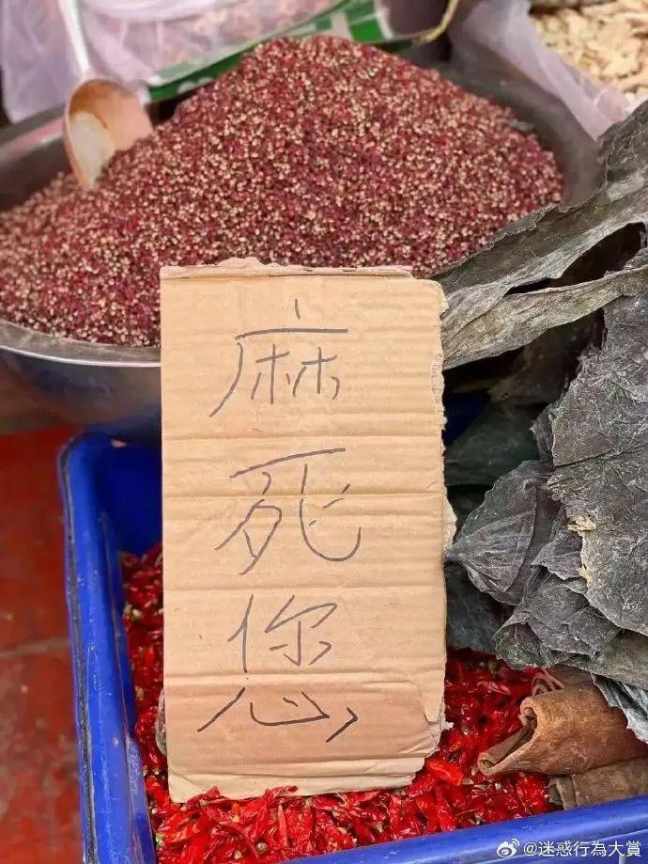 麻死您
@迷惑行為大賞